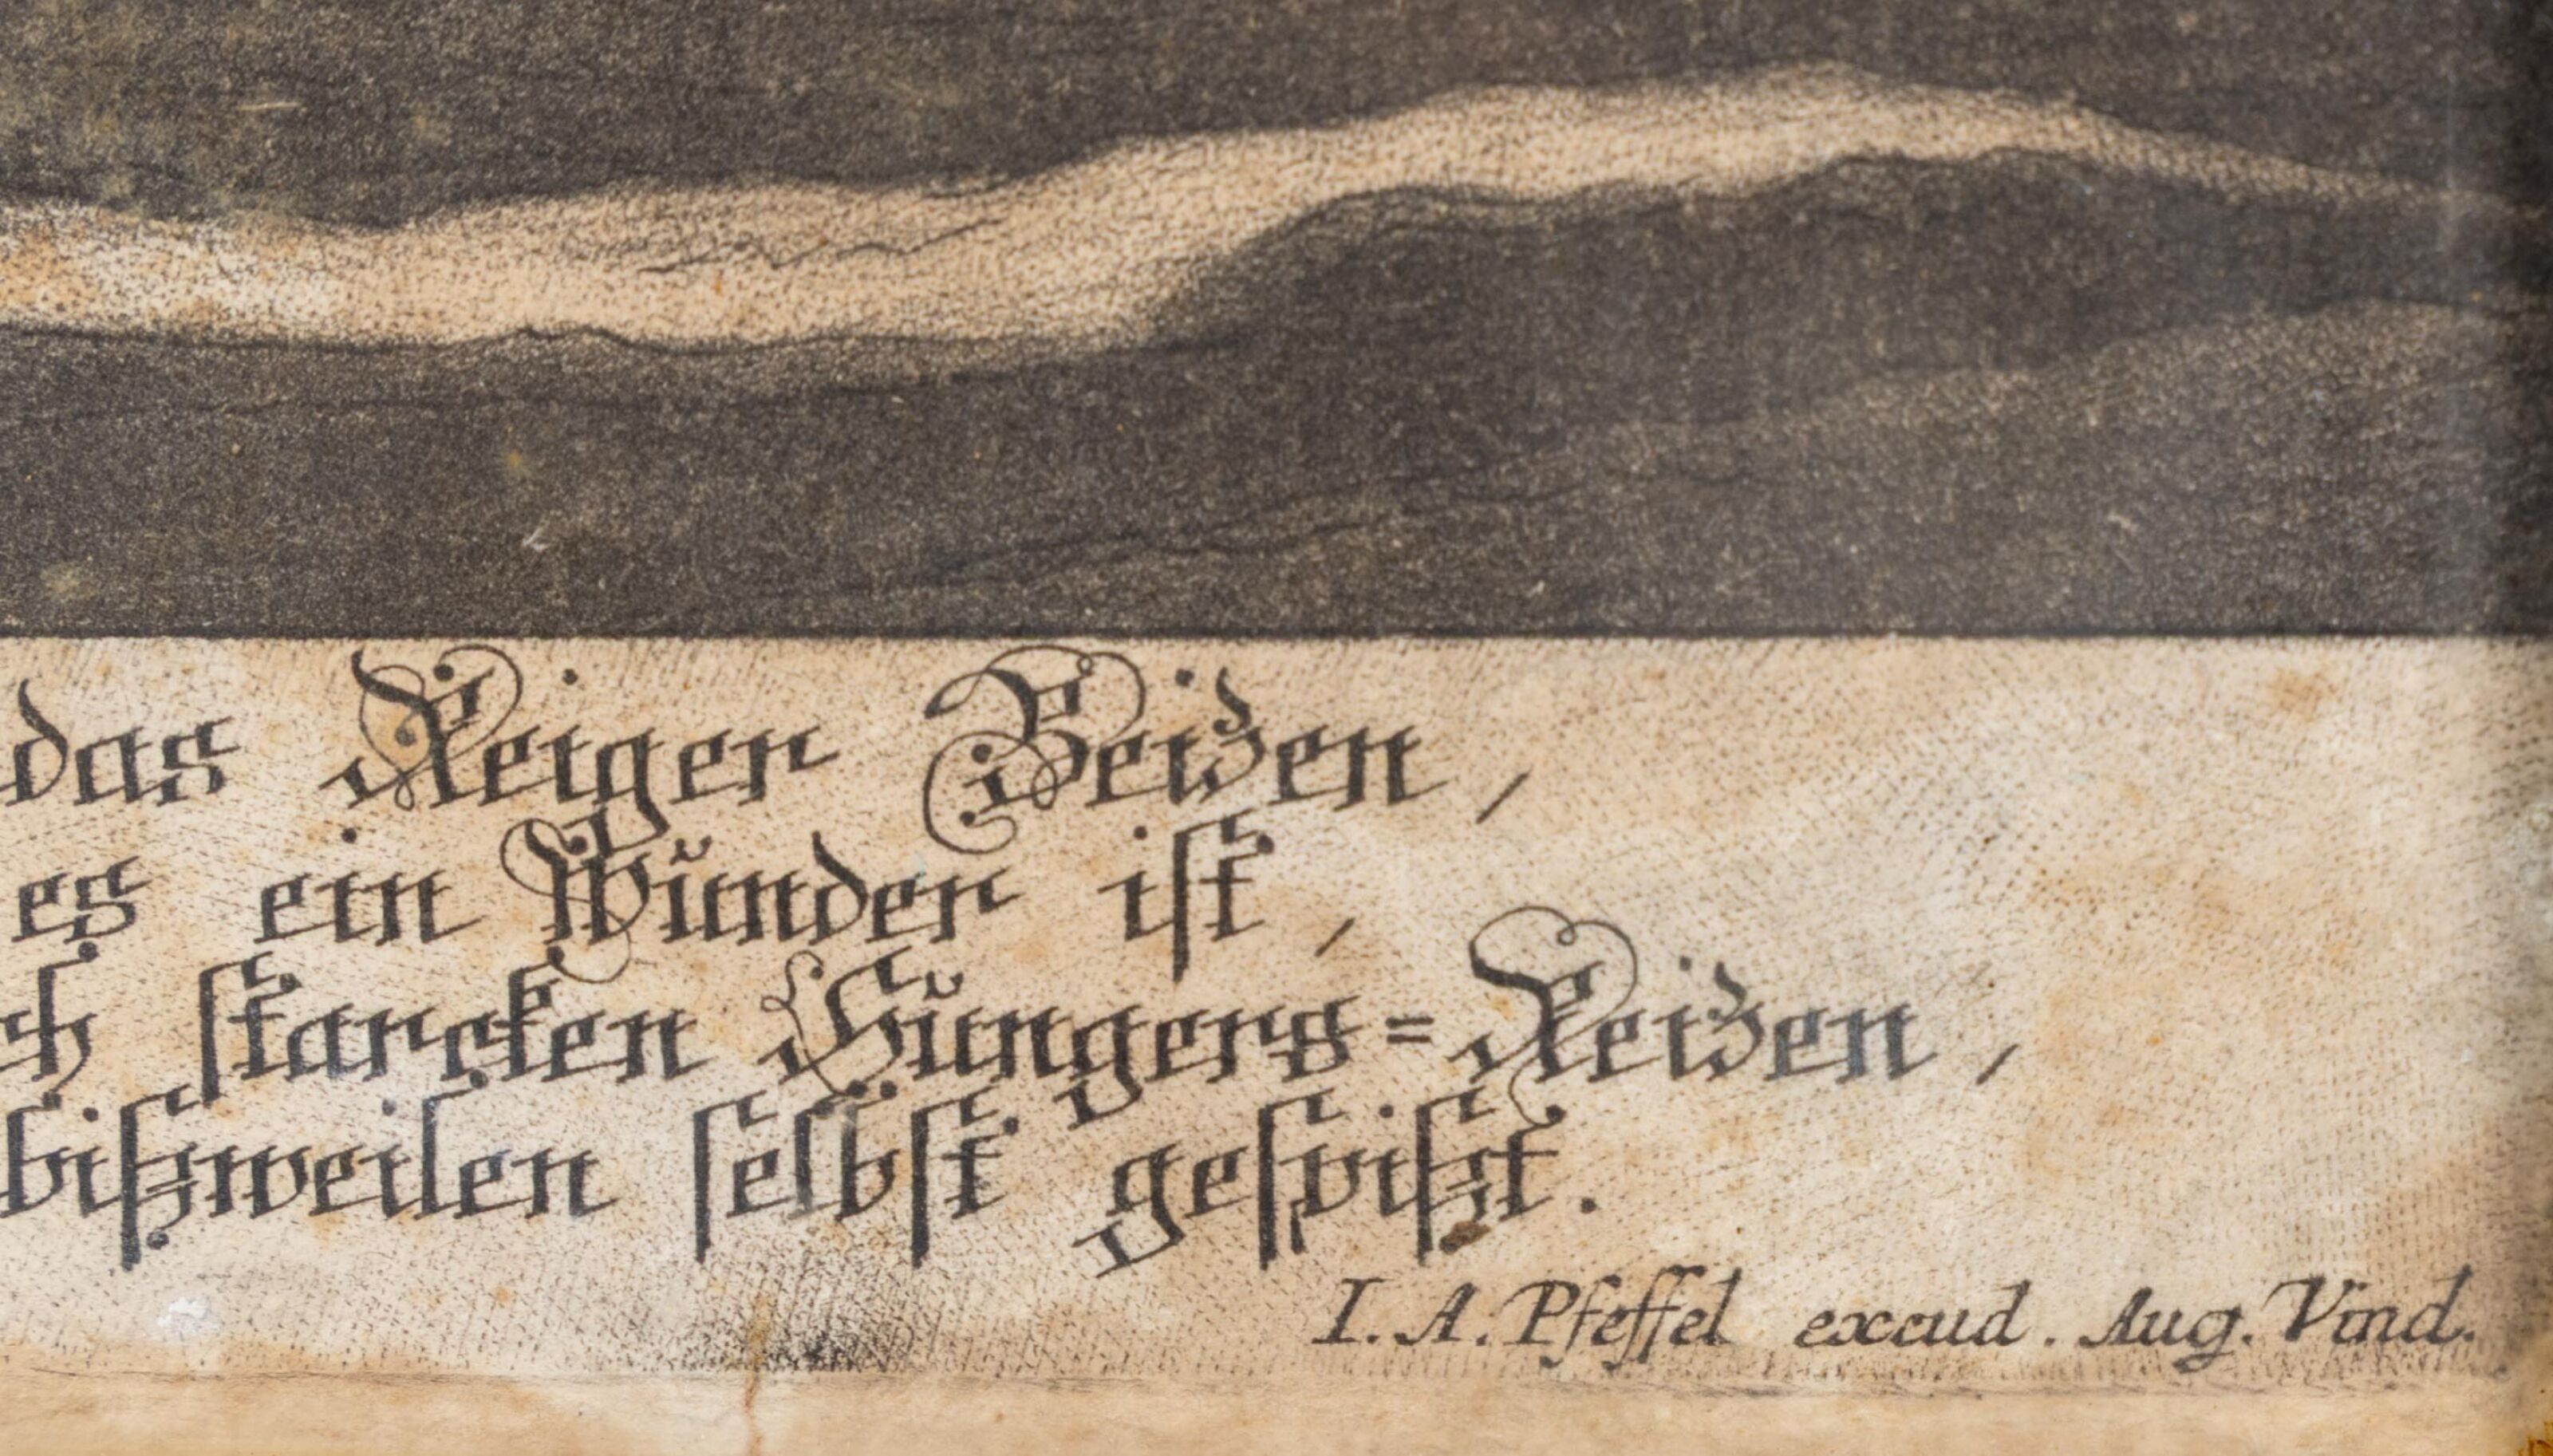 das Reiger Beitzen,
es ein Wŭnder ist,
ch starcken Hŭngers=Reitzen,
bißweilen selbst gespißt.
I. A. Pfeffel excud. Aug. Vind.